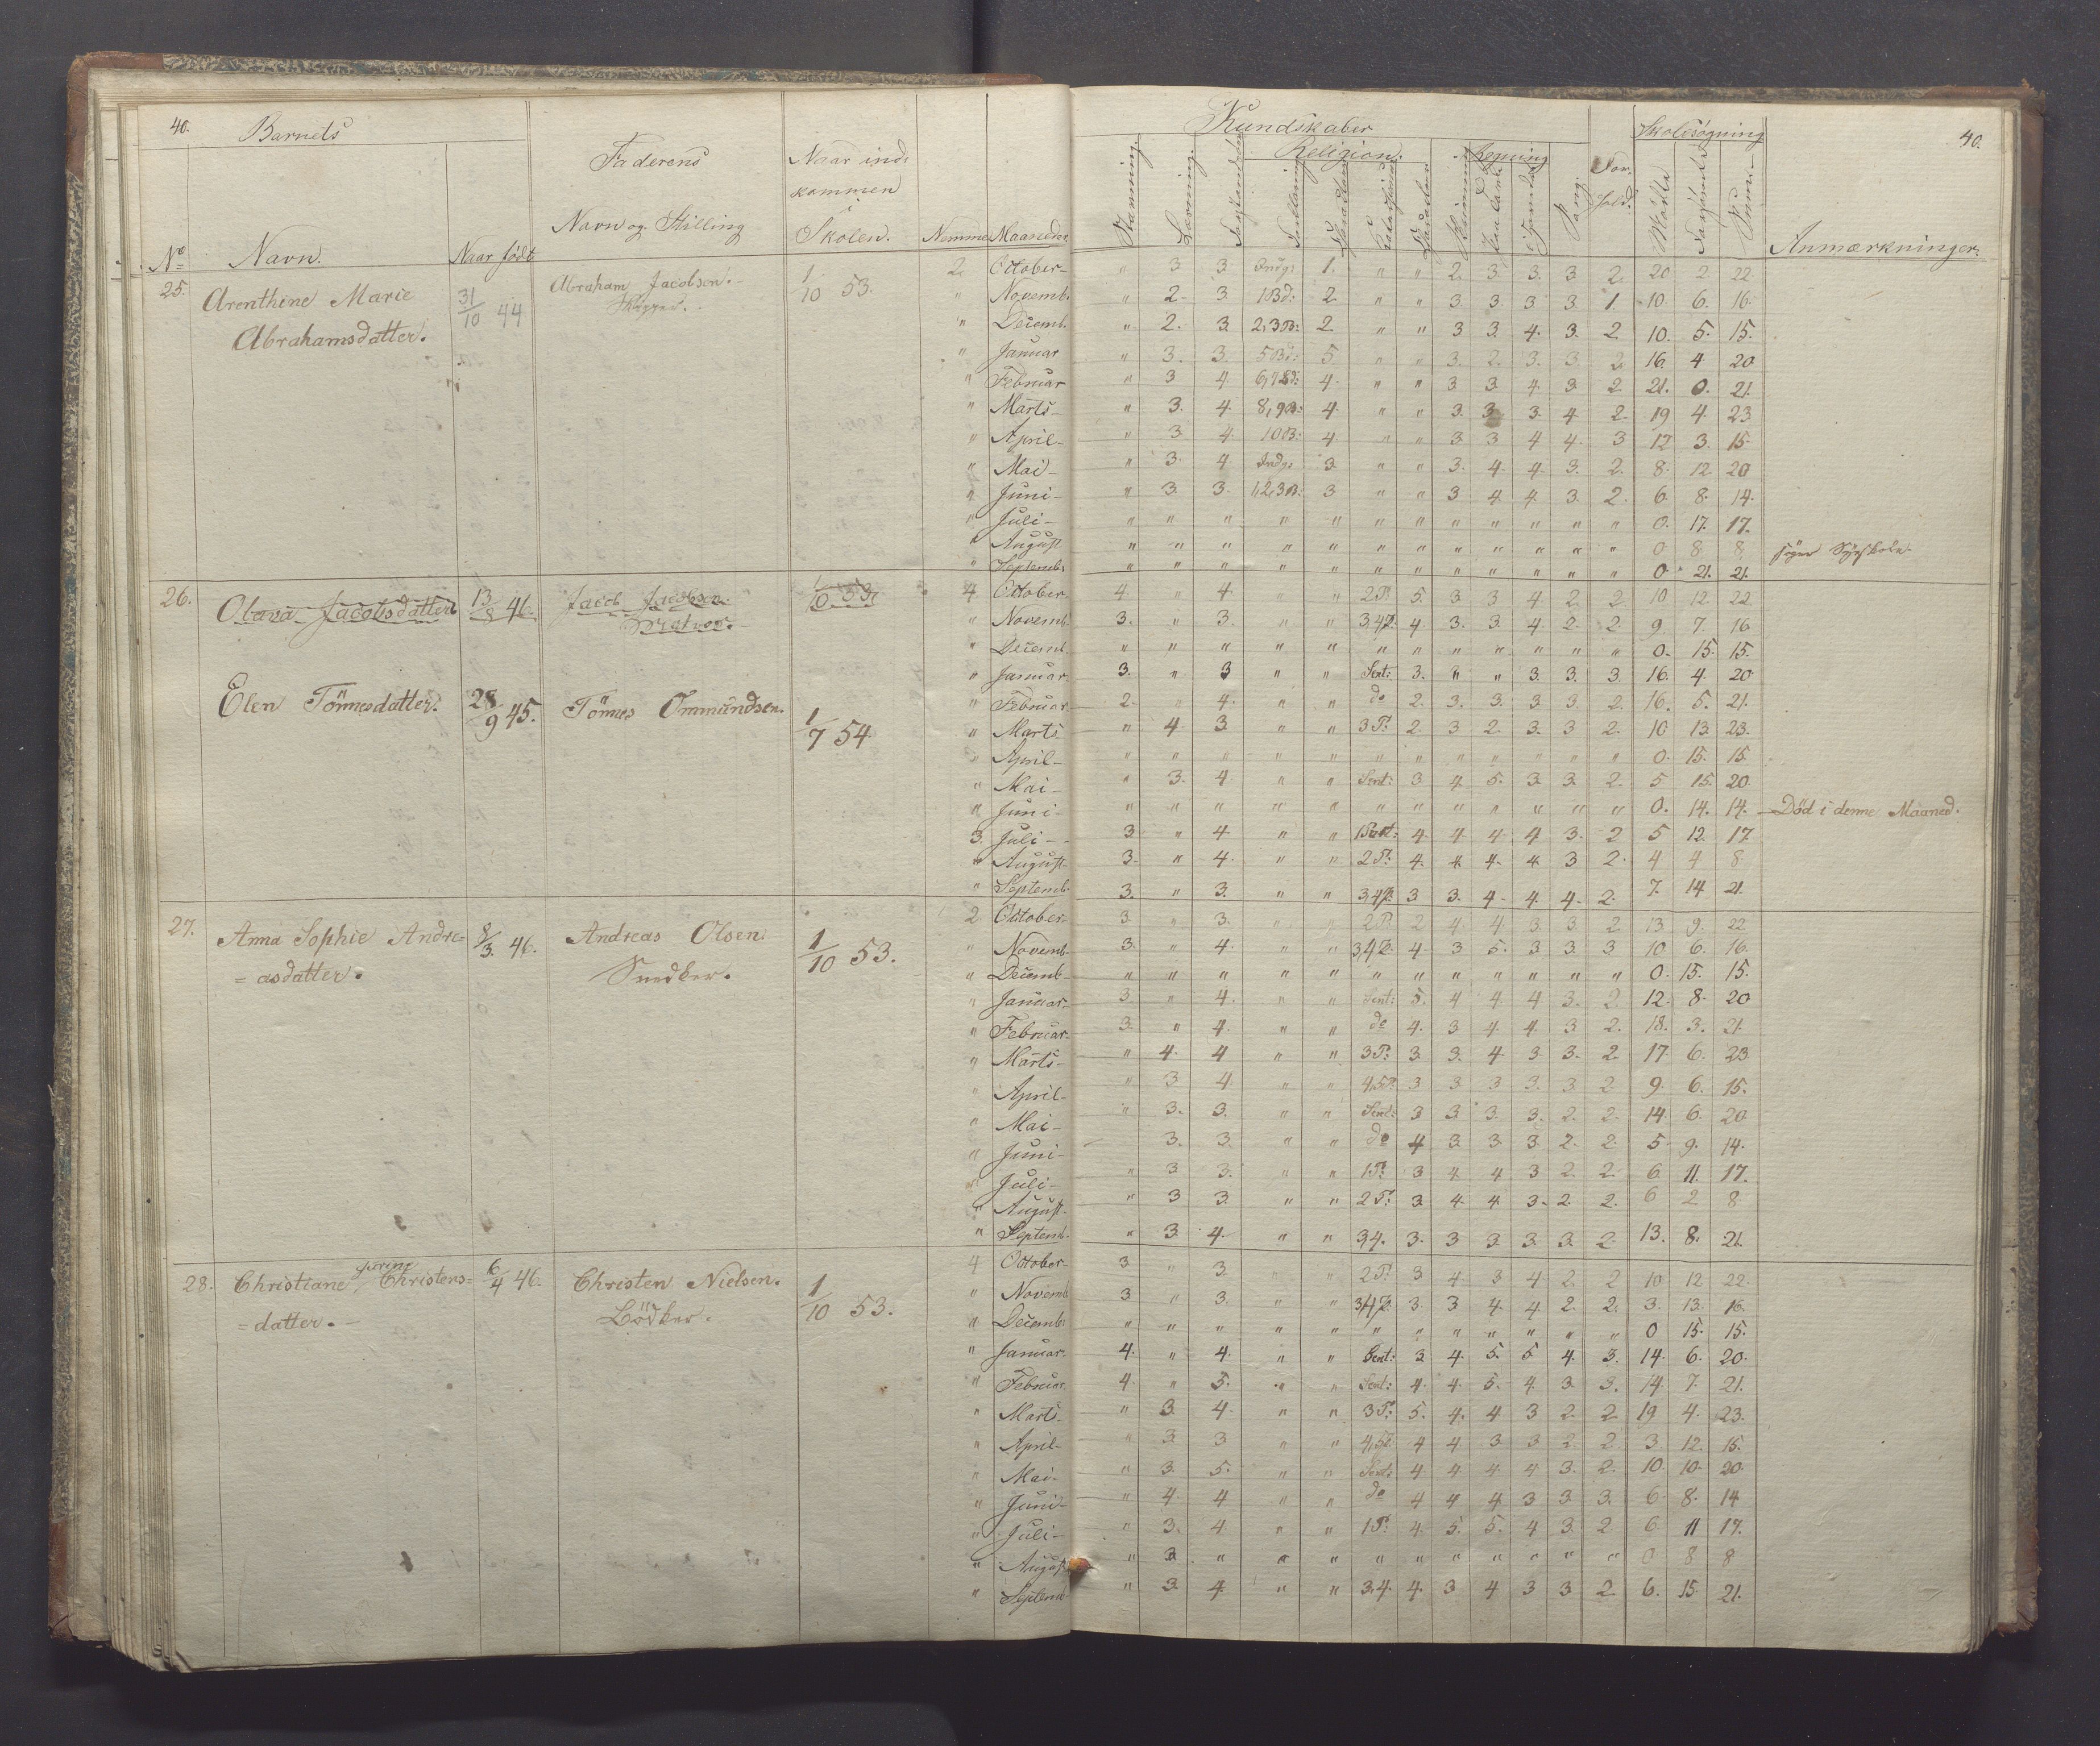 40.
Barnets
Faderens
Naar ind-
kommen
i
Skolen.
Navn og Stilling
No
Navn.
Naar født
Nemme
Maaneder
Kundskaber
Religion.
Regning
Sang.
Skolesøgning
Mødte
Forsømte
Sum.
Anmærkninger.
40.
25. Arenthine Marie 31/10 44 Abraham Jacobsen. 1/10 53.
Abrahamsdatter.
2. October " 3 3 Indg: 1. " " 2. 3 3. 3 2. 20 2. 22
" Novemb. " 2. 3. 1 Bd: 2. " " 3 3 3 3. 1. 10. 6. 16.
" Decemb. " 2. 3. 2,3 B: 2. " " 3 3. 4. 3. 2. 10. 5. 15.
" Januar " 3. 3. 5 Bd: 5 " " 3. 2. 3. 3. 2. 16. 4 20
" Februar " 3 4. 6,7 Bd: 4. " " 3 3. 4. 3 2. 21. 0. 21.
" Marts " 3. 4. 8,9 B: 4. " " 3. 3. 3. 4. 2. 19 4. 23
" April " 3 4. 10 B: 4. " " 3 3 4 4. 3 12 3. 15
" Mai " 3. 4. Indg: 3. " " 3. 4. 4. 3. 2. 8. 12 20
" Juni " 3. 3. 1,2,3 B: 3 " " 3 4. 4. 3 2. 6. 8. 14.
" Juli " " " " " " " " " " " " 0. 17. 17.
" August " " " " " " " " " " " " 0 8 8
" Septemb. " " " " " " " " " " " " 0 21. 21.
26. Olava Jacobsdatter 13/8 46. Jacob Jacobsen. 1/10 53
4 October 4. " 4. " " 2 P. 5. 3 3 4 2 2. 10 12 22
" Novemb. 3. " 3. " " 3,4 P. 4. 3. 3. 4. 2. 2. 9. 7. 16
" Decemb. " " " " " " " " " " " " 0. 15. 15.
" Januar 3. " 3 " " Sent: 3. " " 3. 3. 3. 16. 4. 20
Elen Tönnesdatter. 28/9 45. Tönnes Ommundsen. 1/7 54.
" Februar 2. " 4. " " do 2. 3. 3. 3 3. 2. 16. 5. 21.
" Marts " 4. 3. " " 3 P: 2. 3 2. 3. 3 2. 10 13. 23.
" April " " " " " " " " " " " " 0. 15. 15.
" Mai " 3. 4. " " Sent: 3. 4. 5. 3. 3. 2. 5 15. 20.
" Juni " " " " " " " " " " " " 0. 14. 14. Död i denne Maaned.
3. Juli 3 " 4 " " 4. 4 4. 4 3. 2 5 12. 17
" August 3. " 4. " " 2 P. 4. 4. 4. 4. 3 2. 4 4 8
" Septemb. 3. " 3. " " 3,4 P. 3 3. 4. 4. 4. 2. 7. 14 21.
27. Anna Sophie Andre= 8/3. 46. Andreas Olsen. 1/10 53.
= asdatter. Snedker.
2 October 3. " 3. " " 2 P. 2 4 4 3. 3. 2 13. 9. 22
" Novemb. 3. " 4. " " 3,4 P. 4. 3 5. 3 3. 3 10 6. 16.
" Decemb. " " " " " " " " " " " " 0. 15. 15.
" Januar 3. " 4. " " Sent: 5. 4 4. 4 3. 2. 12. 8. 20
" Februar 3. " 4. " " do 4. 3 4. 4. 3 2. 18. 3. 21.
" Marts " 4. 4 " " 3 P: 3 3. 4. 3. 3. 2. 17. 6. 23
" April " 3 4. " " 4,5 P. 3 3 3 3. 3 2. 9. 6. 15.
" Mai " 3. 3. " " Sent: 3 3. 3. 3. 2. 2. 14. 6. 20
" Juni 3. 3. " " do 4 3. 3. 3. 2. 2. 5. 9. 14.
" Juli " 3 3. " " 1 P: 3 4. 4 3 2. 2. 6. 11. 17.
" August " 3 3. " " 2 P. 3 4. 4. 3. 2. 2. 6 2 8
" Septemb. " 3. 4. " " 3,4. 3. 3 3. 3. 3. 2. 13. 8. 21.
28. Christiane Christens= 6/4 46. Christen Nielsen. 1/10 53.
= datter. Bödker.
4 October 3 " 3. " " 2 P. 3 4. 3 4 2. 2 10. 12. 22.
" Novemb. 3 " 3. " " 3,4 P. 3. 3 4. 4 2. 2. 3. 13. 16.
" Decemb. " " " " " " " " " " " " 0 15. 15.
" Januar 4. " 4. " " Sent: 3 4. 5. 5 4. 3. 14. 6. 20.
" Februar 4. " 5. " " Sent: 4. 4. 5. 4. 3. 3. 14 7. 21.
" Marts " 3. 4. " " 3 P: 5. 4. 4 3 2. 2. 19 4. 23.
" April " 3 3 " " 4,5 P. 4 4 3 3 2. 2. 3. 12. 15.
" Mai " 3. 5. " " Sent: 4 4. 4. 4 3. 2. 10. 10. 20.
" Juni " 4. 4 " " do 4 4 4. 3 3. 3. 6. 8. 14
" Juli " 3. 4. " " 1 P: 4. 5. 5. 4 3. 2. 6. 11 17.
" August " 3 " " " " " " " " " " 0 8 8
" Septemb. " 3. 4. " " 3,4. 4. 3 4 3 3 2. 6. 15. 21.